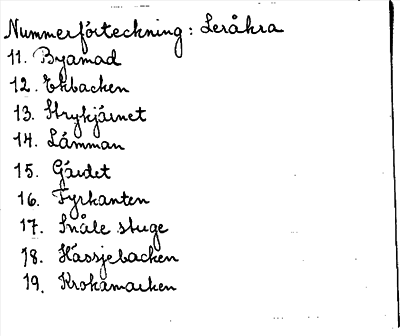 Nummerförteckning: Leråkra
11. Byamad
12. Ekbacken
13. Strykjärnet
14. Lämman
15. Gärdet
16. Fyrkanten
17. Snåle stuge
18. Hässjebacken
19. Krokamarken